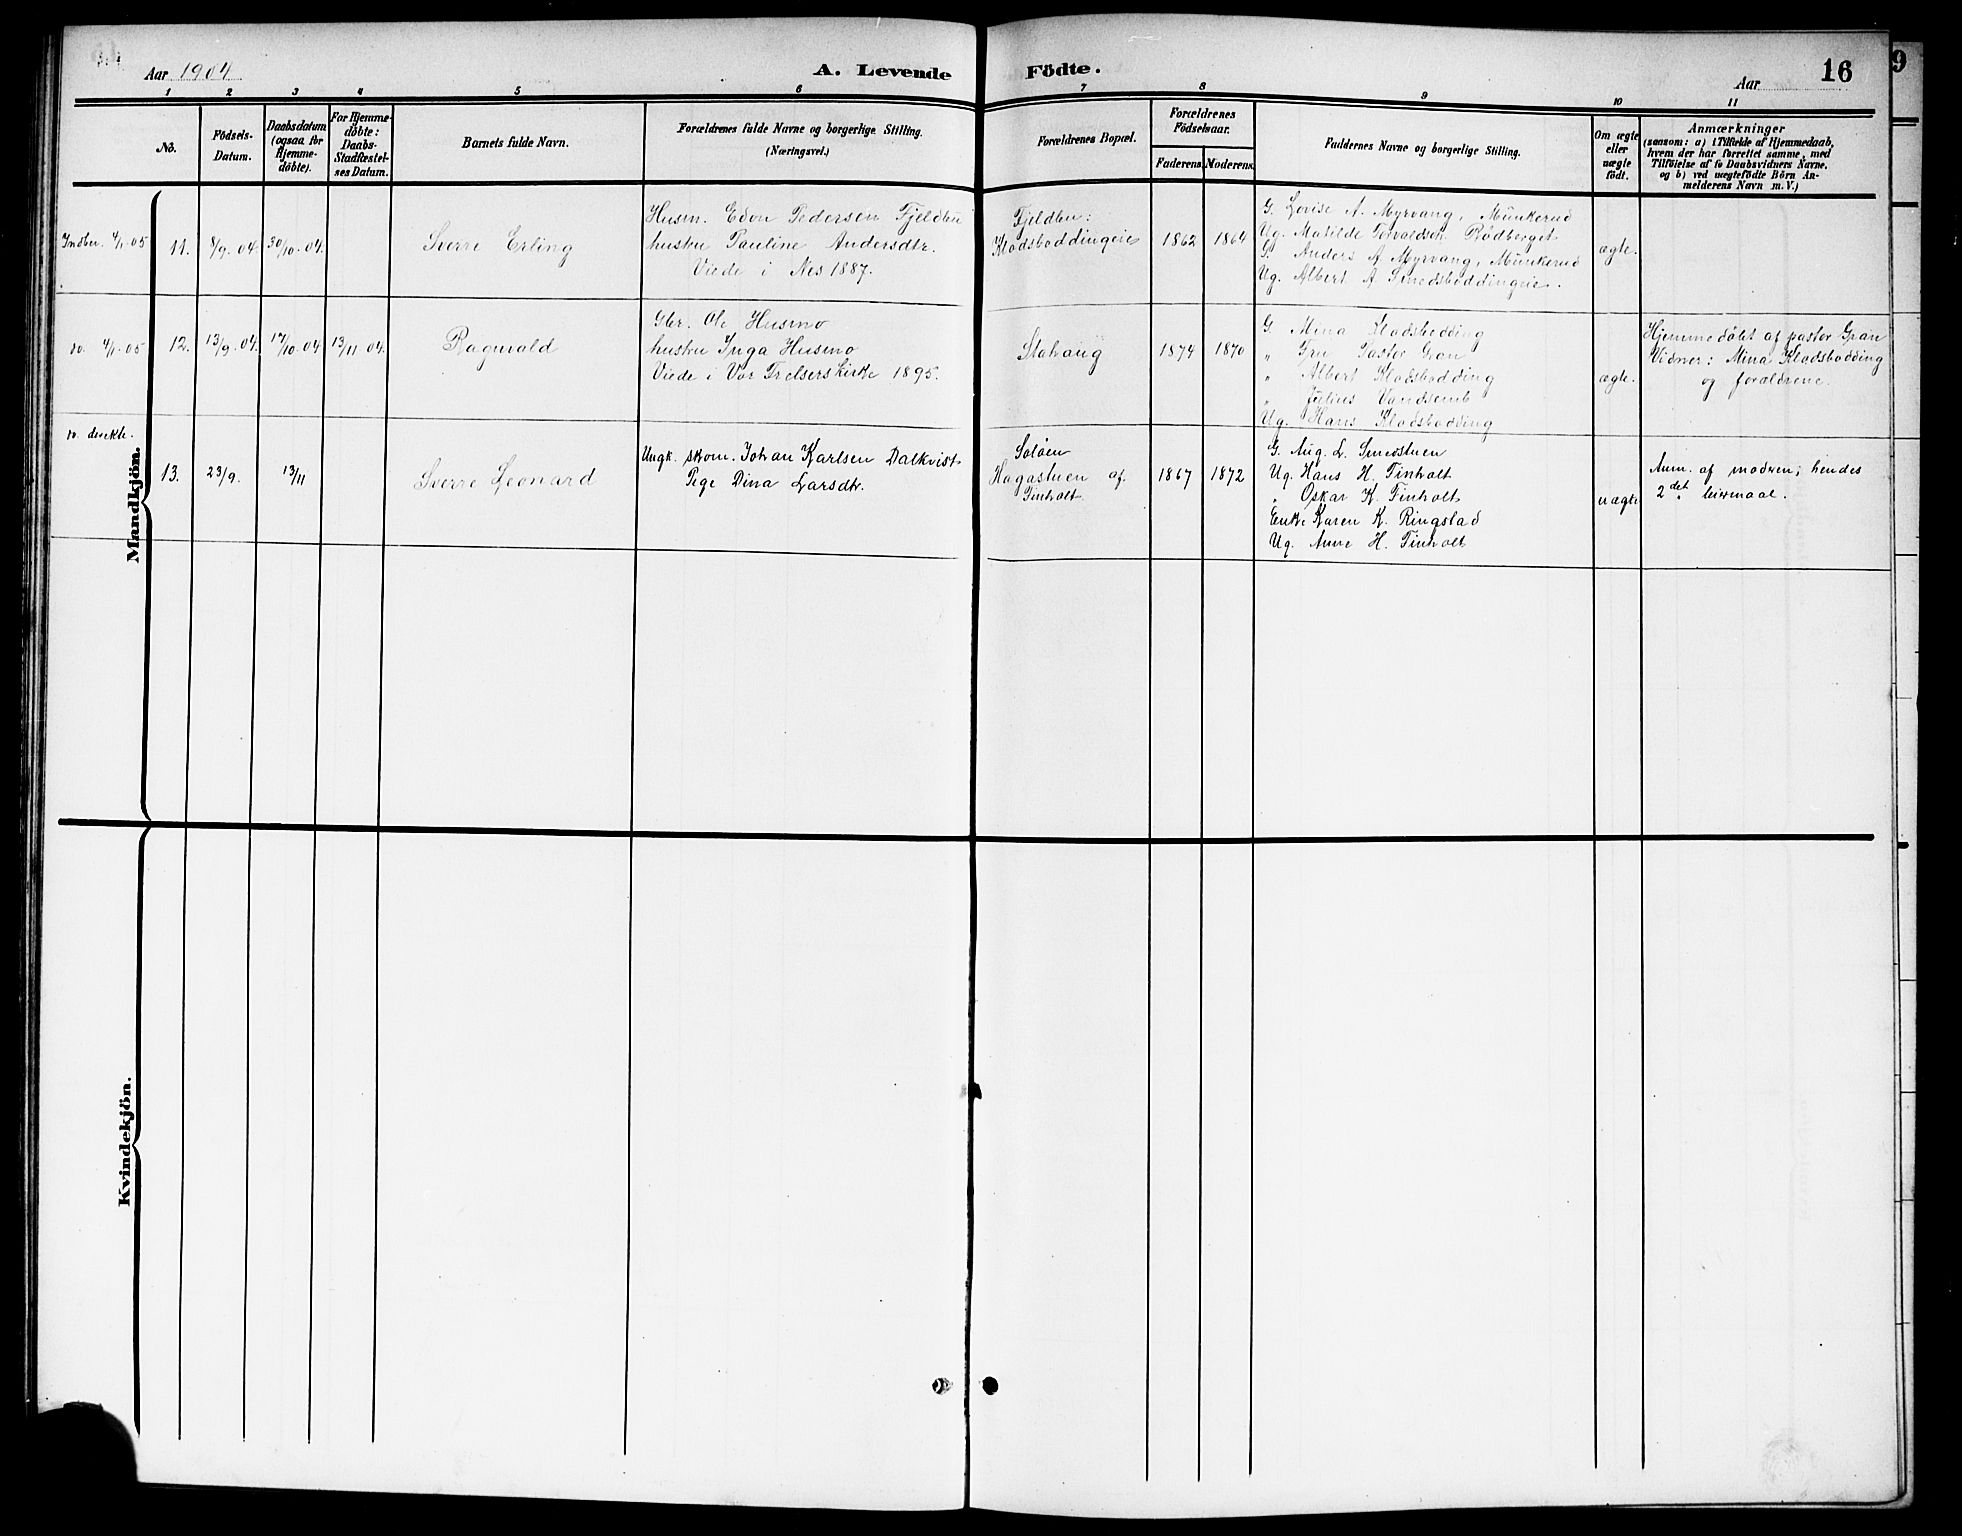 Aar 1904
A. Levende
Födte.
Aar
16
9
1 2 3 4 5 6 7 8 9 10 11
No.
Födsels-
Datum.
Daabsdatum
(ogsaa for
Hjemme-
döbte).
For Hjemme-
döbte:
Daabs-
Stadfæstel-
ses Datum.
Barnets fulde Navn.
Forældrenes fulde Navne og borgerlige Stilling.
(Næringsvei.)
Forældrenes Bopæl.
Forældrenes
Födselsaar.
Faderens.
Moderens.
Faddernes Navne og borgerlige Stilling.
Om ægte
eller
uægte
födt.
Anmærkninger
(saasom: a) i Tilfælde af Hjemmedaab,
hvem der har forrettet samme, med
Tilföielse af to Daabsvidners Navne,
og b) ved uægtefödte Börn An-
melderens Navn m. V.)
Mandkjön.
Indber. 4/1-05
11.
8/9. 04.
30/10. 04.
Sverre Erling
Husm. Edon Pedersen Fjeldbu
hustru Pauline Andersdtr.
Viede i Nes 1887.
Fjeldbu:
Klodsboddingeie
1862
1864
G. Lovise A. Myrvang, Munkerud
Ug. Matilde Torvaldsen Rödberget
G. Anders A. Myrvang, Munkerud
Ug. Albert A. Smedsboddingeie.
ægte.
4/1-05
12.
13/9. 04.
17/10. 04
13/11 04.
Ragnvald
Gbr. Ole Husmo
hustru Inga Husmo
Viede i Vor Frelsers kirke 1895.
Stahaug
1874
1870
G. Mina Klodsbodding
" Fru Pastor Gran
" Albert Klodsbodding
" Julius Vandsemb
Ug. Hans Klodsbodding
ægte.
Hjemmedöbt af pastor Gran
Vidner: Mina Klodsbodding
og forældrene.
13.
23/9.
13/11
Sverre Leonard
Ungk. skom. Johan Karlsen Dalkvist
Pige Dina Larsdtr.
Soløen
Hagastuen af
Finholt
1867
1872
G. Aug. L. Smedstuen
Ug. Hans H. Finholt
" Oskar K. Finholt
Enke Karen K. Ringstad
Ug. Anne H. Finholt
uægte
Anm. af modren; hendes
2det leiermaal.
Kvindekjön.